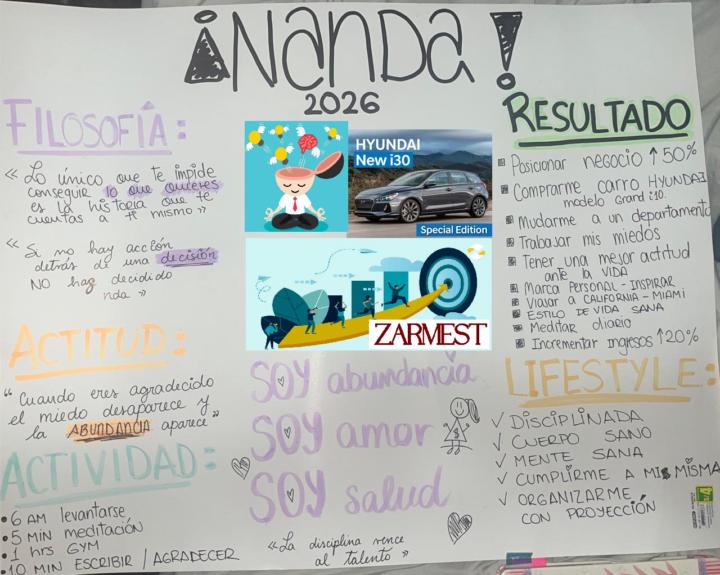 ¡NANDA!
2026
FILOSOFÍA:
« Lo único que te impide
conseguir lo que quieres
es la historia que te
cuentas a ti mismo »
« Si no hay acción
detrás de una decisión
NO haz decidido
nda »
ACTITUD:
“ Cuando eres agradecido
el miedo desaparece y
la ABUNDANCIA aparece”
ACTIVIDAD:
• 6 AM levantarse
• 5 MIN meditación
• 1 hrs GYM
• 10 MIN ESCRIBIR / AGRADECER
HYUNDAI
New i30
Special Edition
ZARMEST
SOY abundancia
SOY amor
SOY salud
« La disciplina vence
al talento »
RESULTADO
Posicionar negocio ↑ 50%
Comprarme carro HYUNDAI
modelo Grand i10.
Mudarme a un departamento
Trabajar mis miedos
Tener una mejor actitud
ante la VIDA
Marca PERSONAL - INSPIRAR
Viajar a CALIFORNIA - MIAMI
ESTILO DE VIDA SANA
Meditar diario
Incrementar ingresos ↑ 20%
LIFESTYLE:
✓ DISCIPLINADA
✓ CUERPO SANO
✓ MENTE SANA
✓ CUMPLIRME A MI MISMA
✓ ORGANIZARME
CON PROYECCIÓN